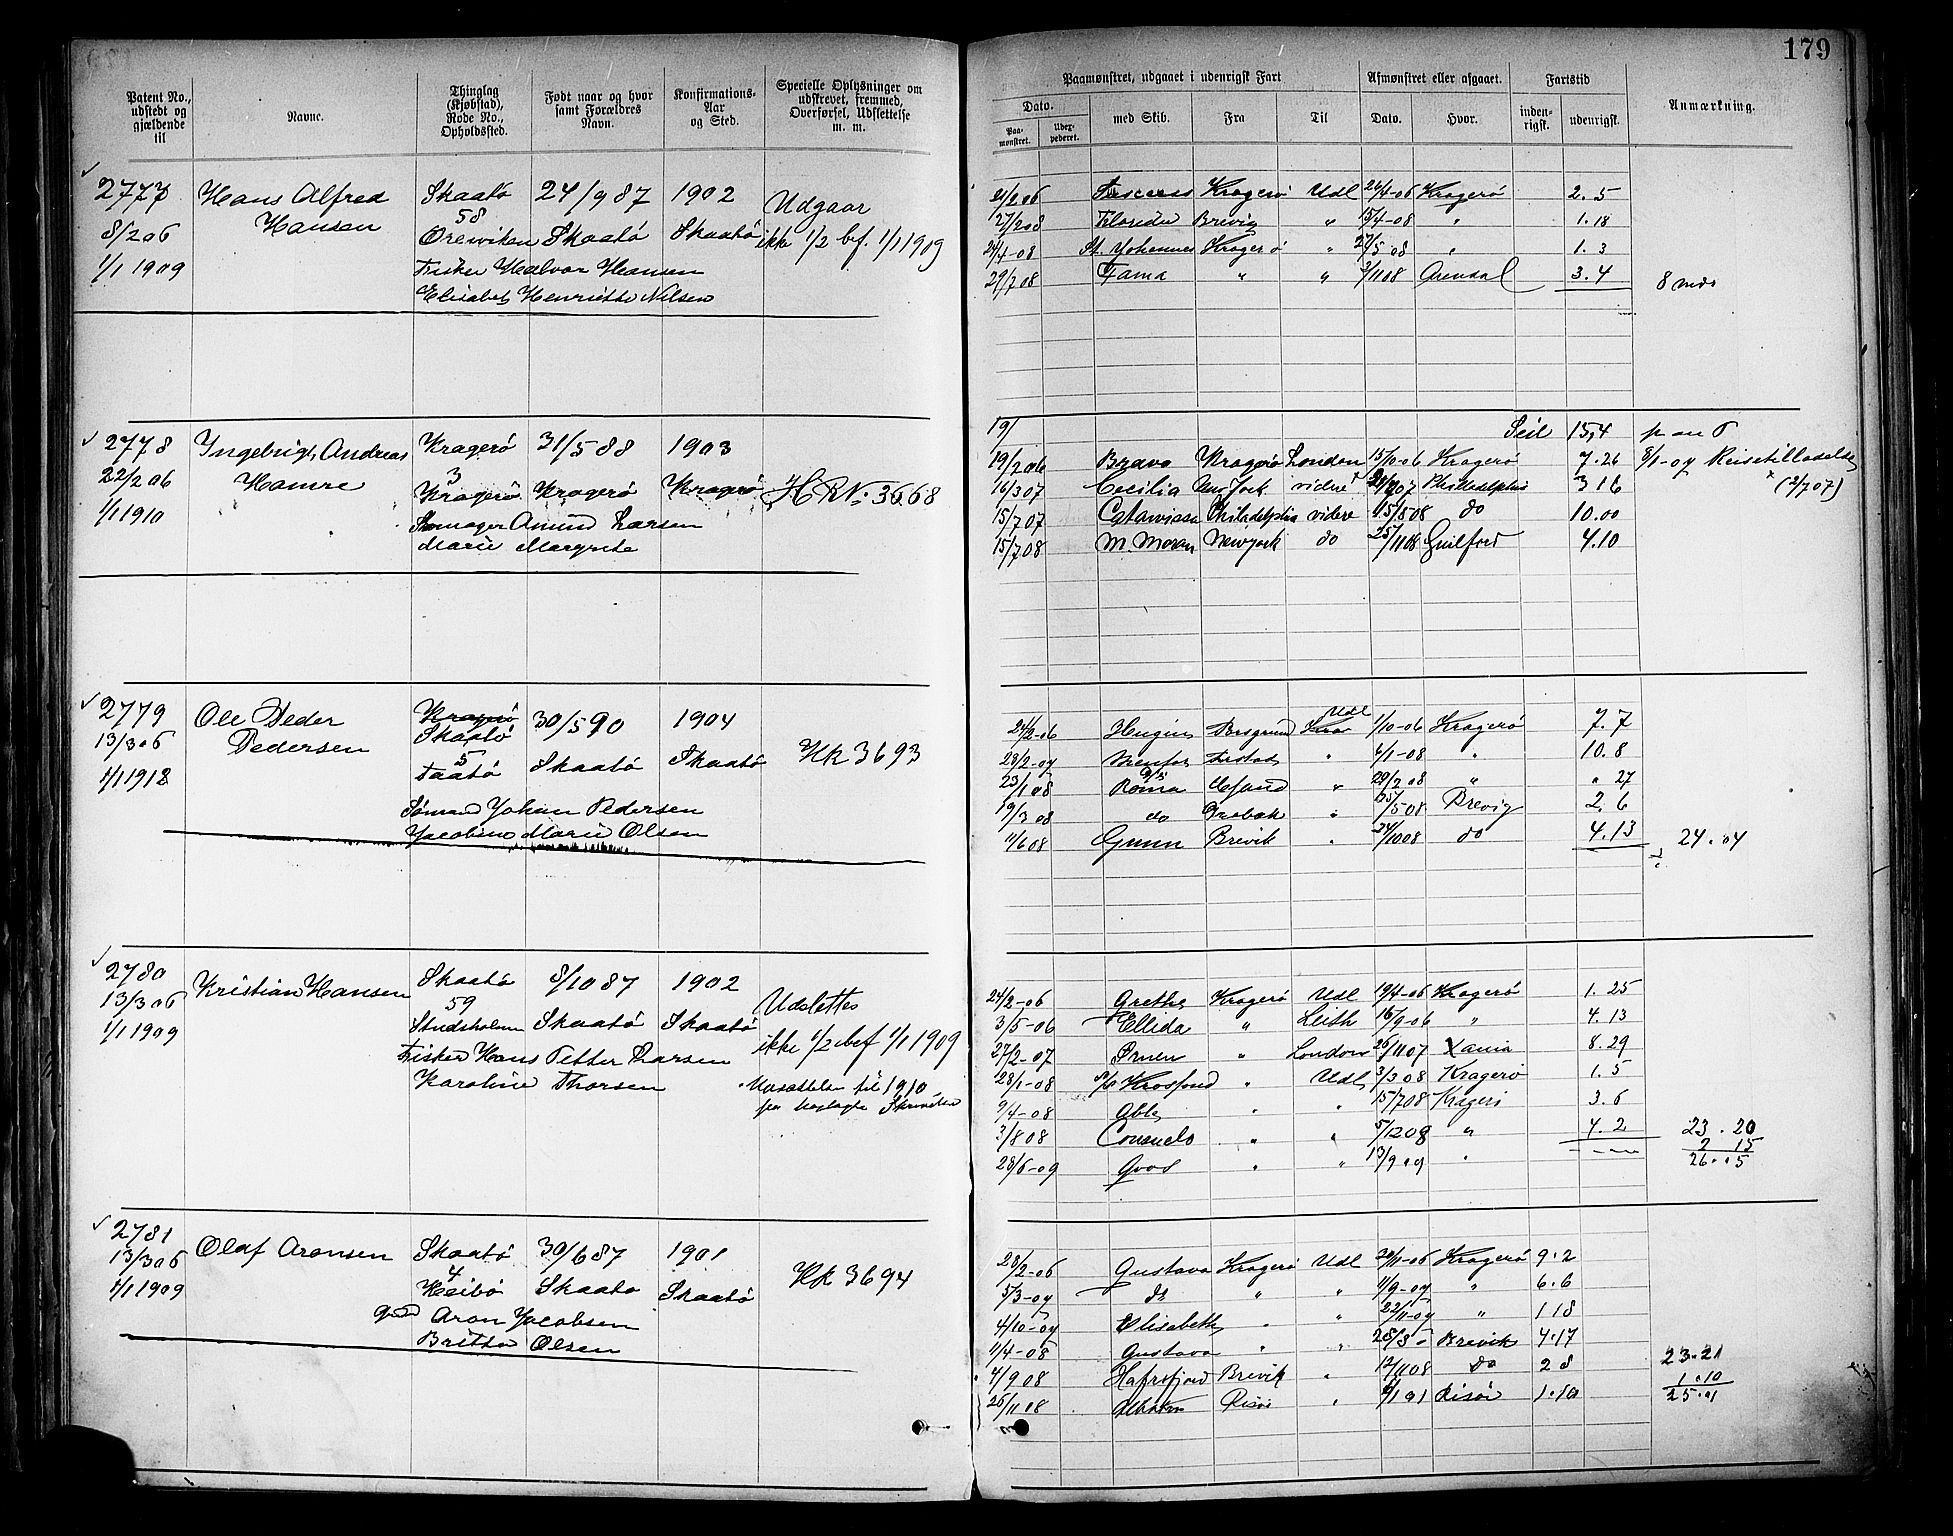 179
Patent No., udstedt og gjældende til
Navne.
Thinglag (Kjøbstad), Rode No., Opholdssted.
Født naar og hvor samt Forældres Navn.
Konfirmations-Aar og Sted.
Specielle Oplysninger om udskrevet, fremmed, Overførsel, Udslettelse m. m.
Paamønstret, udgaaet i udenrigsk Fart
Afmønstret eller afgaaet.
Fartstid
Anmærkning.
Dato.
Paa-mønstret.
Udex-pederet.
med Skib.
Fra
Til
Dato.
Hvor.
inden-rigsk.
udenrigsk.
2777 Hans Alfred Skaatö 24/9 87 1902 Udgaar
8/2 06 Hansen 58
1/1 1909 Skaatö Skaatö ikke 1/2 bef. 1/1 1909
Fisker Halvor Hansen
Elisabet Henriette Nilsen
21/2 06 Kragerö Udl 24/4-06 Kragerö 2. 5
27/2 08 Florida Brevig " 15/4-08 " 1. 18
24/4-08 St. Johannes Kragerö " 27/5 08 " 1. 3
29/7 08 Fama " " 3/11 08 Arendal 3. 4 8 mdr
2778 Ingebrigt Andreas Kragerö 31/5 88 1903
22/2 06 Hamre 3
1/1 1910 Kragerö Kragerö Kragerö HR No 3668
Amund Larsen
Marie Margrete
19/ Seil 15,4
19/2 06 Bravo Kragerö London 15/10-06 Kragerö 7. 26 8/1-07 Reisetilladelse
16/3 07 Cecilia New York videre Philadelphia 3 16 (2/7 07)
15/7 07 Catawissa Philadelphia videre 15/5 08 do 10.00
15/7 08 M. Moran Newyork do 25/11 08 Guilford 4.10
2779 Ole Peder Kragerö 30/5 90 1904
13/3 06 Pedersen Skaatö
1/1 1912 5 Taatö Skaatö Skaatö Hk 3693
Sömand Johan Pedersen
Jacobine Marie Olsen
24/2-06 Hugin Porsgrund Udl 1/10-06 Kragerö 7. 7
23/2-07 " 4/1-08 " 10. 8
23/1 08 Roma " 29/2 08 " " 27
19/3 08 do " 25/5 08 Brevig 2. 6
11/6 08 Gunn Brevik " 24/10 08 do 4. 13 24. 04
2780 Kristian Hansen Skaatö 8/10 87 1902 Udslettes
13/3 06 59
1/1 1909 Studsholmen Skaatö Skaatö ikke 1/2 bef 1/1 1909
Fisker Hans Petter Larsen
Karoline Thorsen til 1910
24/2-06 Grethe Kragerö Udl 19/4-06 Kragerö 1. 25
3/5-06 Ellida " Leith 16/9-06 " 4. 13
27/2-07 Ørnen " London 26/11 07 Xania 8. 29
28/1-08 Krosfond " Udl 3/3 08 Kragerö 1. 5
9/4-08 " " 15/7 08 Kragerö 3. 6
3/8 08 Consuelo " " 5/12 08 " 4. 2 23. 20
28/6-09 " " 13/9 09 " 2 15
26. 5
2781 Olaf Aronsen Skaatö 30/6 87 1901
13/3 06 4
1/1 1909 Skaatö Skaatö Hk 3694
Aron Jacobsen
Britha Olsen
28/2-06 Gustava Kragerö Udl 30/11-06 Kragerö 9. 2
5/3-07 do " " 11/9-07 " 6. 6
4/10-07 Elisabeth " " 22/11-07 " 1 18
11/4-08 Gustava " " 28/8 - Brevik 4. 17
4/9 08 Hafrsfjord Brevik " 12/11 08 do 2 8 23. 21
26/11 08 Risör " Risör 1. 10 1. 10
25. 1